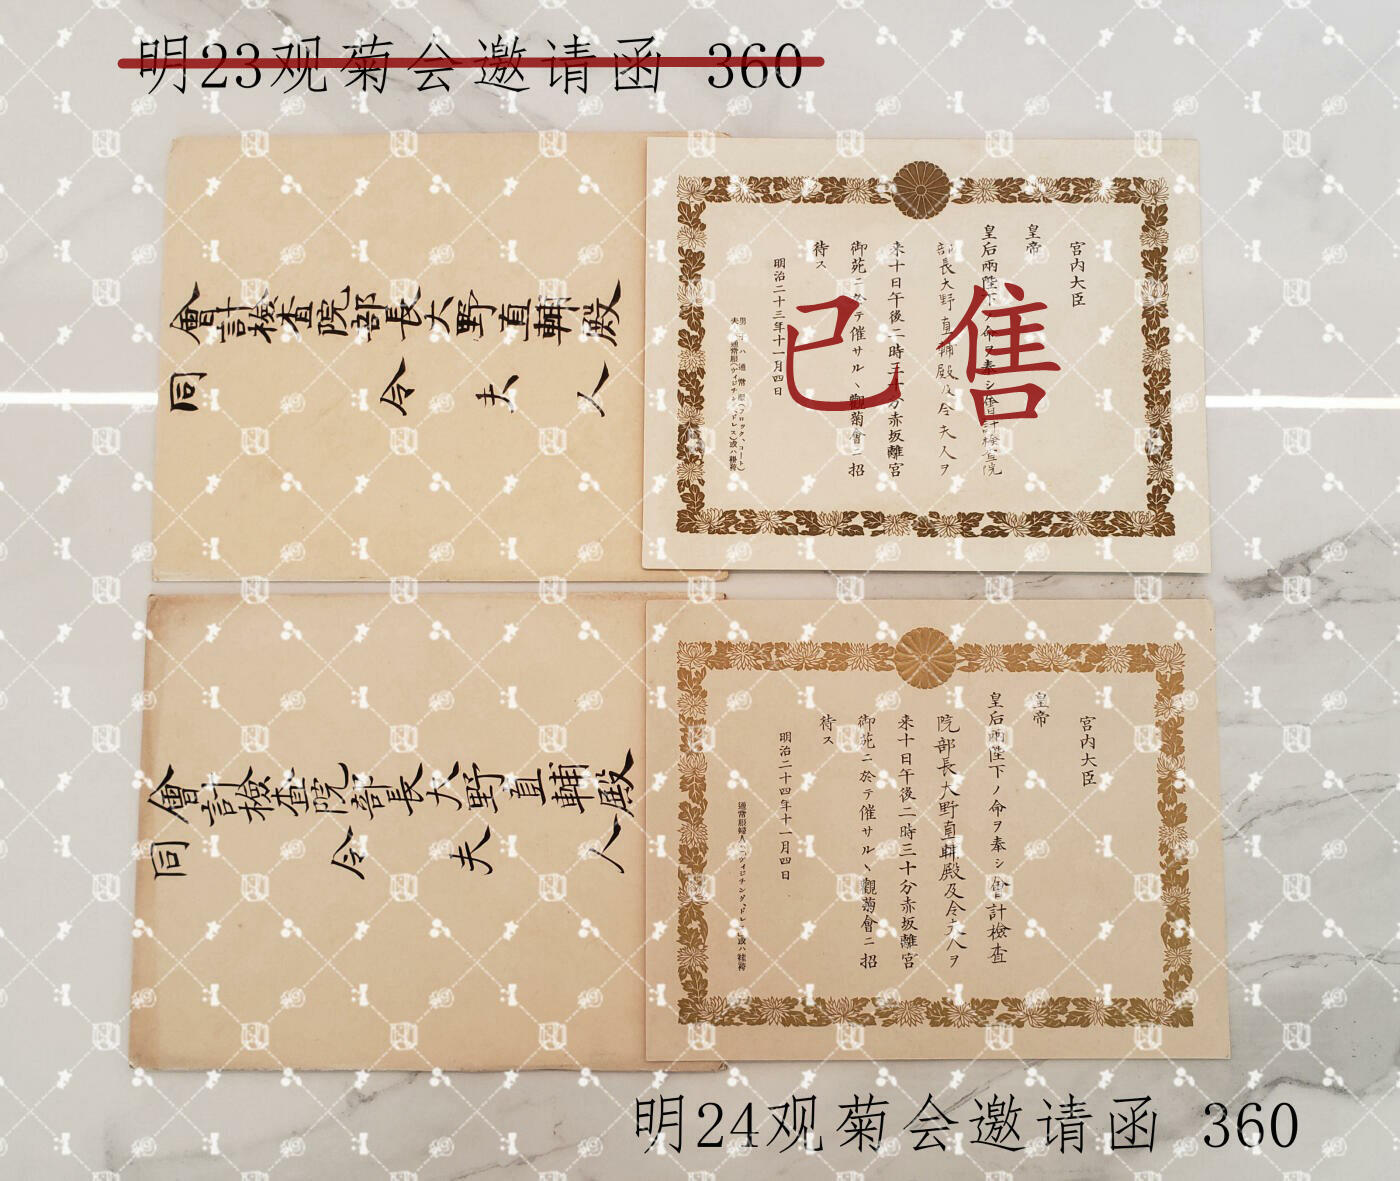 明23观菊会邀请函 360
會計檢查院部長大野直輔殿
同 令夫人
宮内大臣
皇帝
皇后兩陛下ノ命ヲ奉シ會計檢查院
部長大野直輔殿及令夫人ヲ
来十日午後二時三十分赤坂離宮
御苑ニ於テ催サルヽ觀菊會ニ招
待ス
明治二十三年十一月四日
已售
會計檢查院部長大野直輔殿
同 令夫人
宮内大臣
皇帝
皇后兩陛下ノ命ヲ奉シ會計檢查
院部長大野直輔殿及令夫人ヲ
来十日午後二時三十分赤坂離宮
御苑ニ於テ催サルヽ觀菊會ニ招
待ス
明治二十四年十一月四日
通常服婦人ハ(ヴィジチング、ドレス)或ハ袿袴
明24观菊会邀请函 360